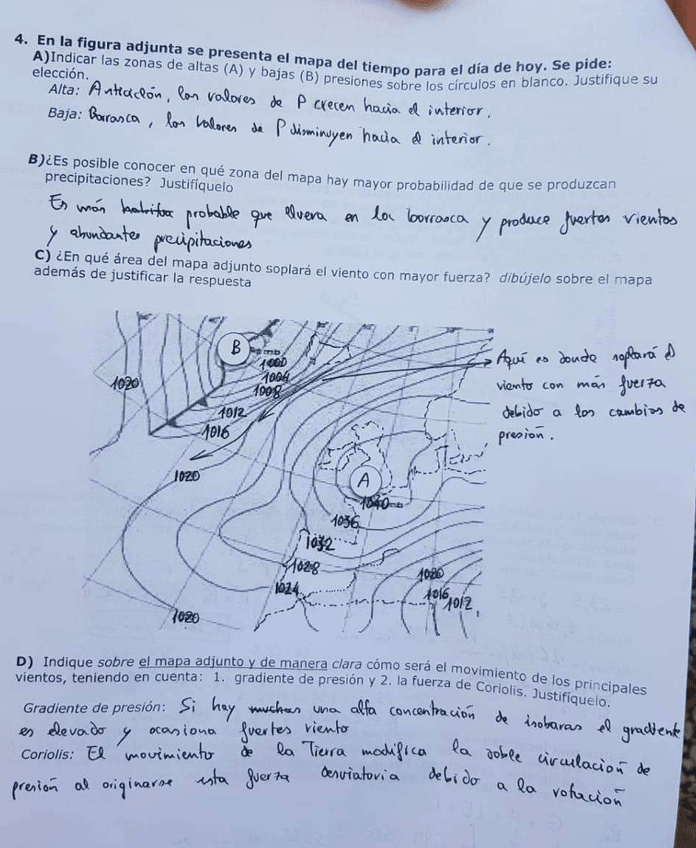 4. En la figura adjunta se presenta el mapa del tiempo para el día de hoy. Se pide:
A)Indicar las zonas de altas (A) y bajas (B) presiones sobre los círculos en blanco. Justifique su
elección.
Alta: Anticiclón, los valores de P crecen hacia el interior.
Baja: Borrasca, los valores de P disminuyen hacia el interior.
B)¿Es posible conocer en qué zona del mapa hay mayor probabilidad de que se produzcan
precipitaciones? Justifíquelo
Es más probable que llueva en la borrasca y produce fuertes vientos
y abundantes precipitaciones
C) ¿En qué área del mapa adjunto soplará el viento con mayor fuerza? dibújelo sobre el mapa
además de justificar la respuesta
B
mb
1000
1004
1008
1020
1012
1016
1020
A
1040 mb
1036
1032
1028
1024
1020
1020
1016
1012
Aquí es donde soplará el
viento con más fuerza
debido a los cambios de
presión.
D) Indique sobre el mapa adjunto y de manera clara cómo será el movimiento de los principales
vientos, teniendo en cuenta: 1. gradiente de presión y 2. la fuerza de Coriolis. Justifíquelo.
Gradiente de presión: Si hay muchas una alta concentración de isobaras el gradiente
es elevado y ocasiona fuertes viento
Coriolis: El movimiento de la Tierra modifica la doble circulación de
presión al originarse esta fuerza desviatoria debido a la rotación